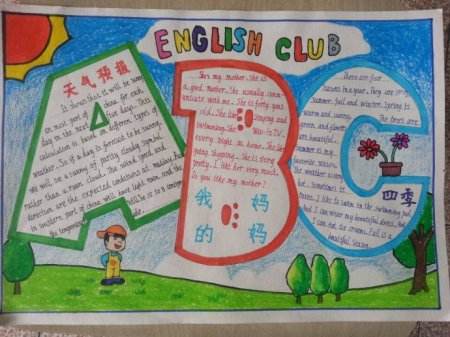 ENGLISH CLUB
天气预报
It shows that it will be warm
on most part of China for each
day in the next
days. This
calculation is based on different types of
weather. So if a day is forecast to be sunny,
we will see a sunny or partly cloudy symbol
rather than a rain cloud. The wind speed and
direction are the expected conditions at midday.
In western part of China will have light rain, and the
She's my mother. She is
a good mother. She usually
with me. She is forty years
old. She likes
and
swimming. She
TV
every night at home. She likes
going shopping. She is very
pretty. I like her very much.
Do you like my mother?
我 妈
的 妈
There are four
seasons in a year. They are spring,
summer, fall and winter. Spring is
warm and sunny.
The trees are
green, and flowers
are beautiful.
Summer is my
favorite season.
The weather is very
hot. Sometimes it
rains. I like to swim in the swimming pool,
and I can wear my beautiful dress. And
I can eat ice cream. Fall is a
beautiful season.
四季